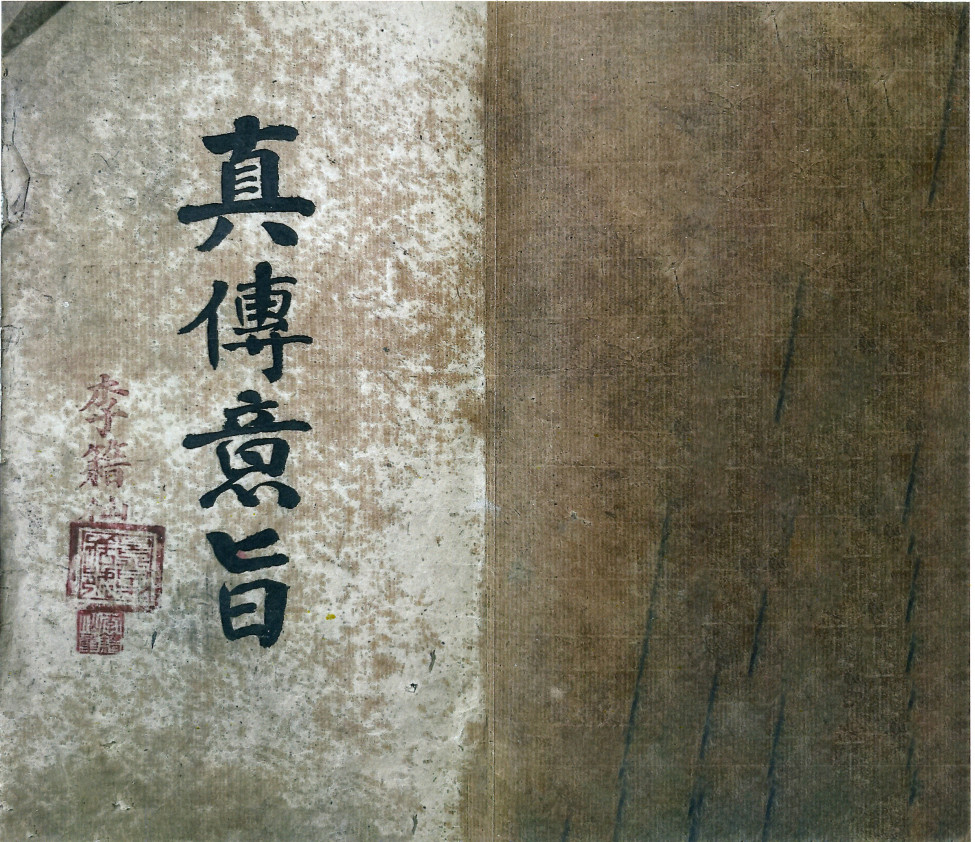 真傳意旨
李籍仙